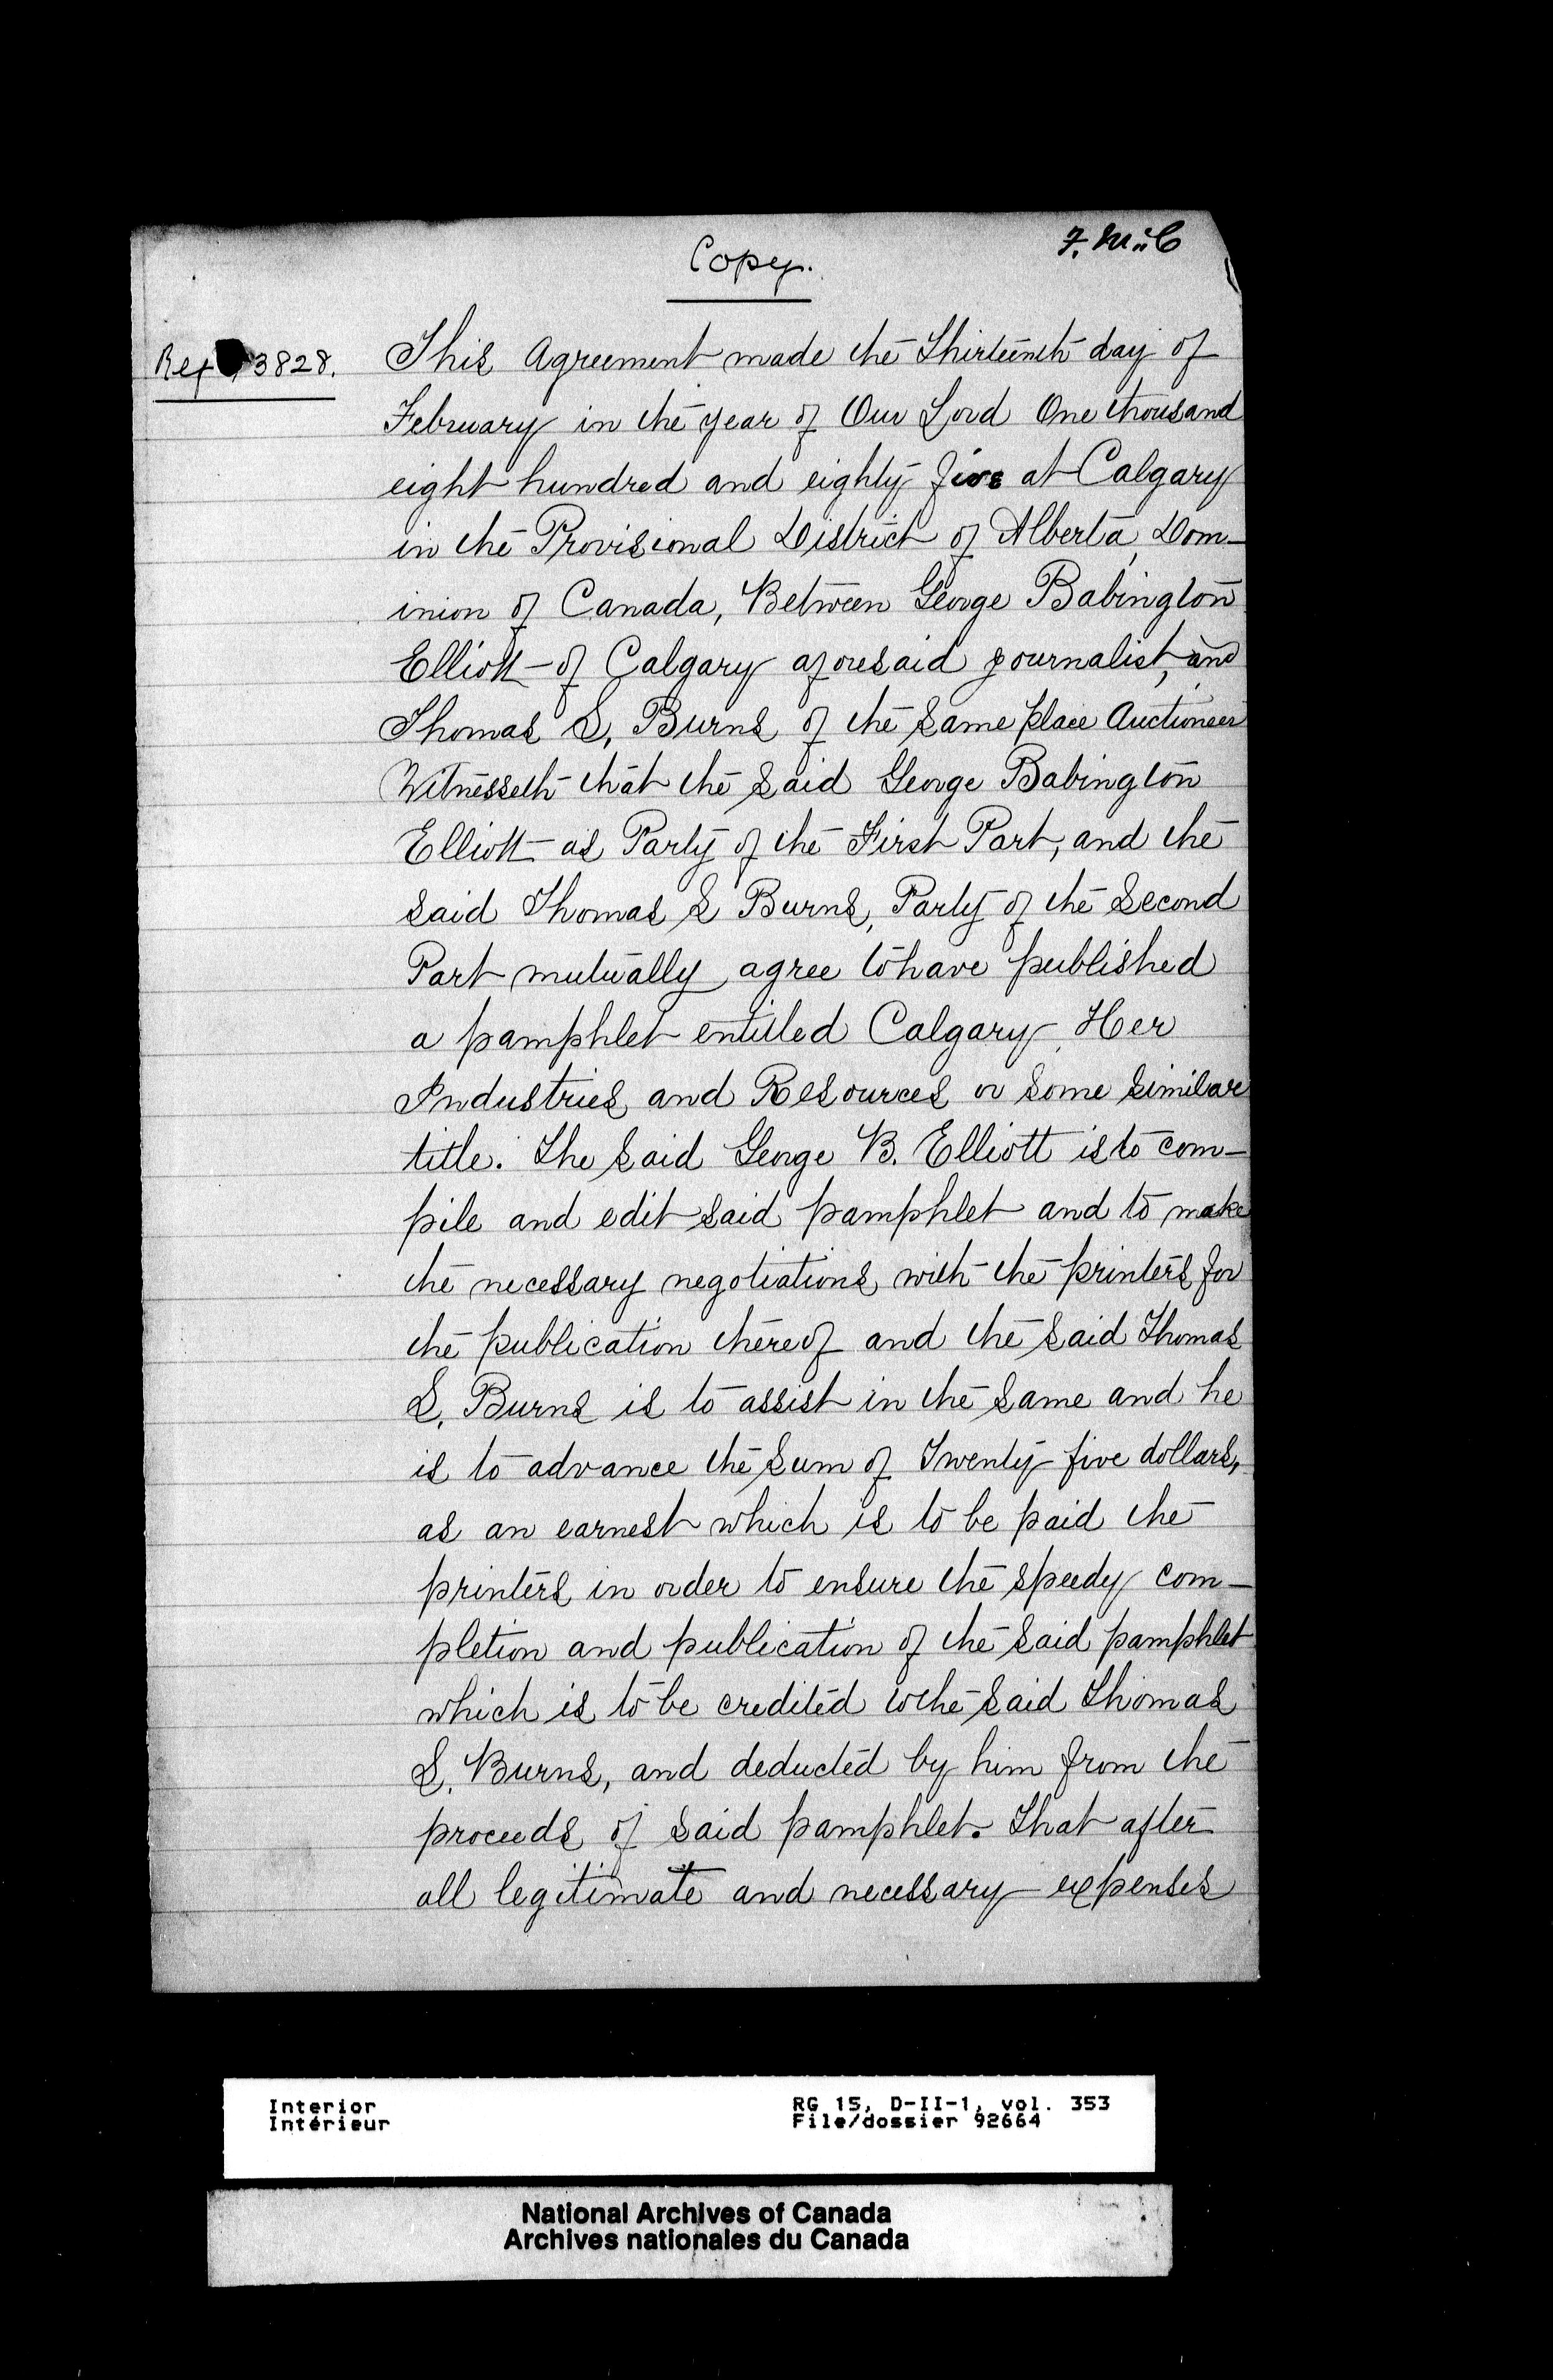 Copy.
Ref 3828.
This Agreement made the Thirteenth day of
February in the year of Our Lord One thousand
eight hundred and eighty five at Calgary
in the Provisional District of Alberta, Dom-
inion of Canada, Between George Babington
Elliott of Calgary aforesaid journalist, and
Thomas S. Burns of the same place Auctioneer
Witnesseth that the said George Babington
Elliott as Party of the First Part, and the
said Thomas S Burns, Party of the Second
Part mutually agree to have published
a pamphlet entitled Calgary, Her
Industries and Resources or some similar
title. The said George B. Elliott is to com-
pile and edit said pamphlet and to make
the necessary negotiations with the printers for
the publication thereof and the said Thomas
S. Burns is to assist in the same and he
is to advance the sum of Twenty five dollars,
as an earnest which is to be paid the
printers in order to ensure the speedy com-
pletion and publication of the said pamphlet
which is to be credited to the said Thomas
S. Burns, and deducted by him from the
proceeds of said pamphlet. That after
all legitimate and necessary expenses
Interior
Intérieur
RG 15, D-II-1, vol. 353
File/dossier 92664
National Archives of Canada
Archives nationales du Canada